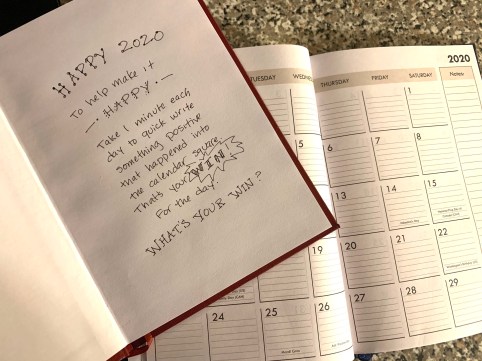 HAPPY 2020
To help make it
— HAPPY. —
Take 1 minute each
day to quick write
something positive
that happened into
the calendar square
That's your WIN!
For the day.
WHAT'S YOUR WIN?
2020
TUESDAY WEDNE THURSDAY FRIDAY SATURDAY Notes
1
5 6 7 8
13 14 15
19 20 21 22
24 25 26 27 28 29